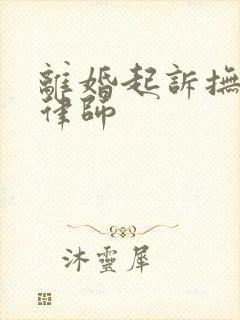 離婚起訴撫
律師
沐靈犀